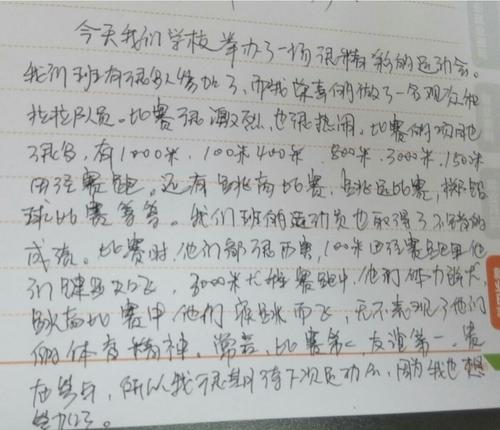 今天我们学校举办了一场很精彩的运动会。
我们班有很多人参加了,而我荣幸的做了一名观众和
拉拉队员。比赛很激烈,也很热闹。比赛的项目也
很多,有1000米,100米 400米,800米,3000米,1500米
田径赛跑。还有跳高比赛,跳远比赛,
球比赛等等。我们班的运动员也取得了不错的
成绩。比赛时,他们都很厉害,100米田径赛跑里他
们健步如飞,3000米长跑赛跑中,他们体力强大,
跳高比赛中他们 跳而飞,无不表现了他们
的体育精神。常言,比赛第二,友谊第一。贵
在参与,所以我很期待下次运动会,因为我也想
参加。